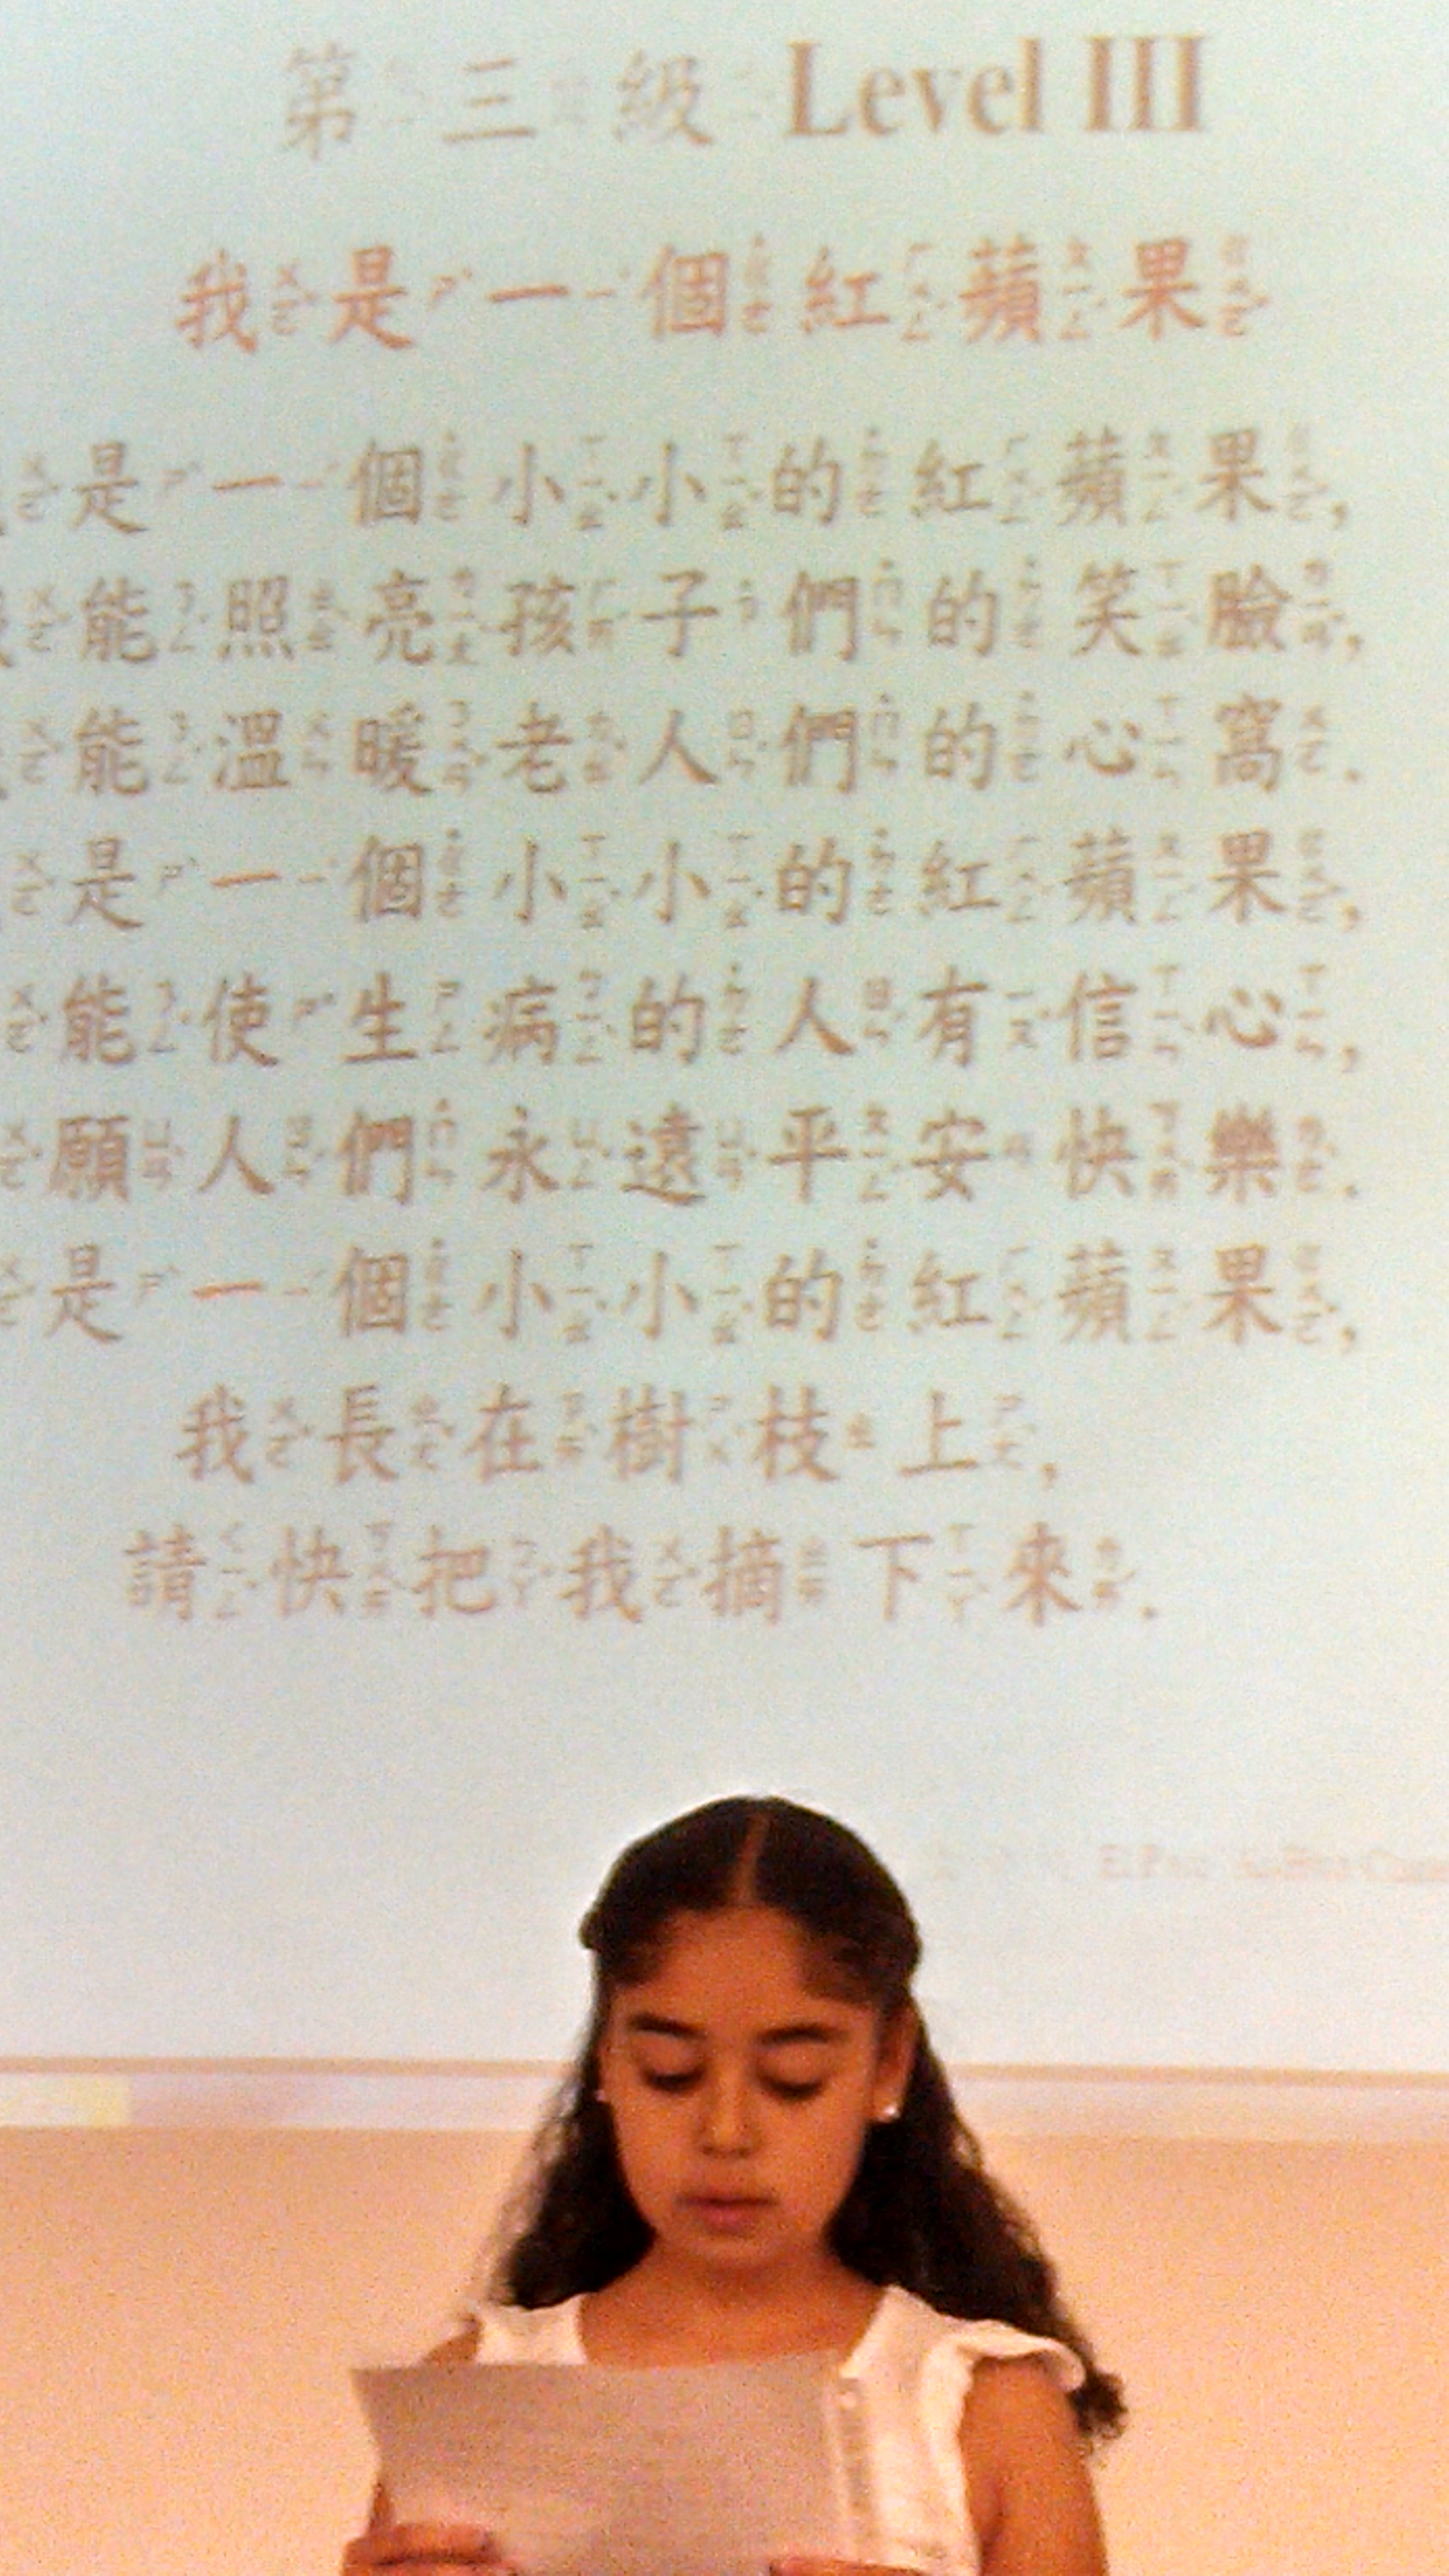 第三級 Level III
我是一個紅蘋果
是一個小小的紅蘋果,
能照亮孩子們的笑臉,
能溫暖老人們的心窩.
是一個小小的紅蘋果,
能使生病的人有信心,
願人們永遠平安快樂.
是一個小小的紅蘋果,
我長在樹枝上,
請快把我摘下來.